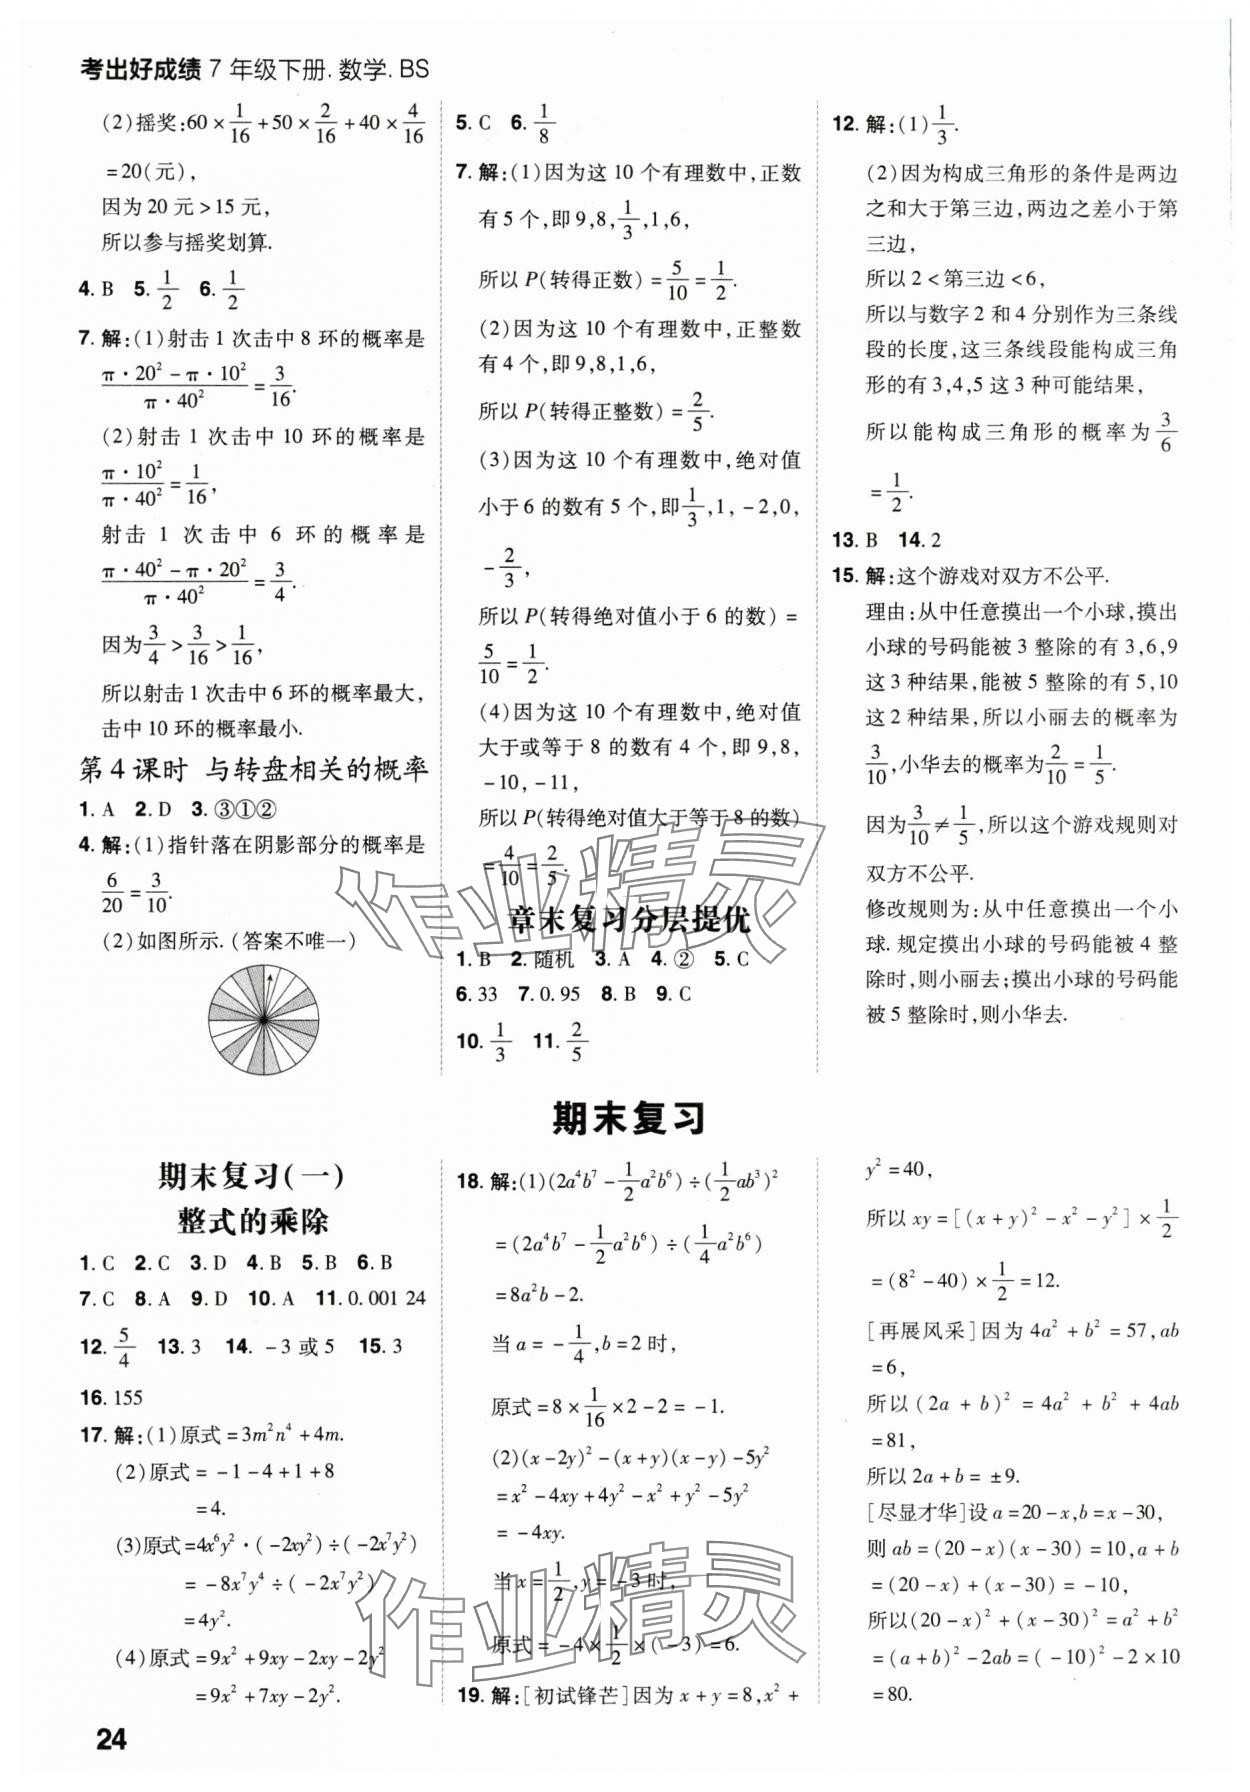 考出好成绩 7 年级下册. 数学. BS
(2)摇奖:60×1/16+50×2/16+40×4/16
=20(元),
因为 20 元>15 元,
所以参与摇奖划算.
4. B 5. 1/2 6. 1/2
7. 解:(1)射击 1 次击中 8 环的概率是
(π·20²-π·10²)/(π·40²)=3/16.
(2)射击 1 次击中 10 环的概率是
(π·10²)/(π·40²)=1/16,
射击 1 次击中 6 环的概率是
(π·40²-π·20²)/(π·40²)=3/4.
因为3/4>3/16>1/16,
所以射击 1 次击中 6 环的概率最大,
击中 10 环的概率最小.
第 4 课时 与转盘相关的概率
1. A 2. D 3. ③①②
4. 解:(1)指针落在阴影部分的概率是
6/20=3/10.
(2)如图所示. (答案不唯一)
5. C 6. 1/8
7. 解:(1)因为这 10 个有理数中,正数
有 5 个,即 9,8,1/3,1,6,
所以 P(转得正数)=5/10=1/2.
(2)因为这 10 个有理数中,正整数
有 4 个,即 9,8,1,6,
所以 P(转得正整数)=2/5.
(3)因为这 10 个有理数中,绝对值
小于 6 的数有 5 个,即1/3,1,-2,0,
-2/3,
所以 P(转得绝对值小于 6 的数)=
5/10=1/2.
(4)因为这 10 个有理数中,绝对值
大于或等于 8 的数有 4 个,即 9,8,
-10,-11,
所以 P(转得绝对值大于等于 8 的数)
=4/10=2/5.
章末复习分层提优
1. B 2. 随机 3. A 4. ② 5. C
6. 33 7. 0.95 8. B 9. C
10. 1/3 11. 2/5
12. 解:(1)1/3.
(2)因为构成三角形的条件是两边
之和大于第三边,两边之差小于第
三边,
所以 2<第三边<6,
所以与数字 2 和 4 分别作为三条线
段的长度,这三条线段能构成三角
形的有 3,4,5 这 3 种可能结果,
所以能构成三角形的概率为3/6
=1/2.
13. B 14. 2
15. 解:这个游戏对双方不公平.
理由:从中任意摸出一个小球,摸出
小球的号码能被 3 整除的有 3,6,9
这 3 种结果,能被 5 整除的有 5,10
这 2 种结果,所以小丽去的概率为
3/10,小华去的概率为2/10=1/5.
因为3/10≠1/5,所以这个游戏规则对
双方不公平.
修改规则为:从中任意摸出一个小
球. 规定摸出小球的号码能被 4 整
除时,则小丽去;摸出小球的号码能
被 5 整除时,则小华去.
期末复习
期末复习(一)
整式的乘除
1. C 2. C 3. D 4. B 5. B 6. B
7. C 8. A 9. D 10. A 11. 0.001 24
12. 5/4 13. 3 14. -3 或 5 15. 3
16. 155
17. 解:(1)原式=3m²n⁴+4m.
(2)原式=-1-4+1+8
=4.
(3)原式=4x⁶y²·(-2xy²)÷(-2x⁷y²)
=-8x⁷y⁴÷(-2x⁷y²)
=4y².
(4)原式=9x²+9xy-2xy-2y²
=9x²+7xy-2y².
18. 解:(1)(2a⁴b⁷-1/2a²b⁶)÷(1/2ab³)²
=(2a⁴b⁷-1/2a²b⁶)÷(1/4a²b⁶)
=8a²b-2.
当 a=-1/4,b=2 时,
原式=8×1/16×2-2=-1.
(2)(x-2y)²-(x+y)(x-y)-5y²
=x²-4xy+4y²-x²+y²-5y²
=-4xy.
当 x=1/2,y=-3 时,
原式=-4×1/2×(-3)=6.
19. 解:[初试锋芒]因为 x+y=8,x²+
y²=40,
所以 xy=[(x+y)²-x²-y²]×1/2
=(8²-40)×1/2=12.
[再展风采]因为 4a²+b²=57,ab
=6,
所以(2a+b)²=4a²+b²+4ab
=81,
所以 2a+b=±9.
[尽显才华]设 a=20-x,b=x-30,
则 ab=(20-x)(x-30)=10,a+b
=(20-x)+(x-30)=-10,
所以(20-x)²+(x-30)²=a²+b²
=(a+b)²-2ab=(-10)²-2×10
=80.
24
作业精灵
作业精灵